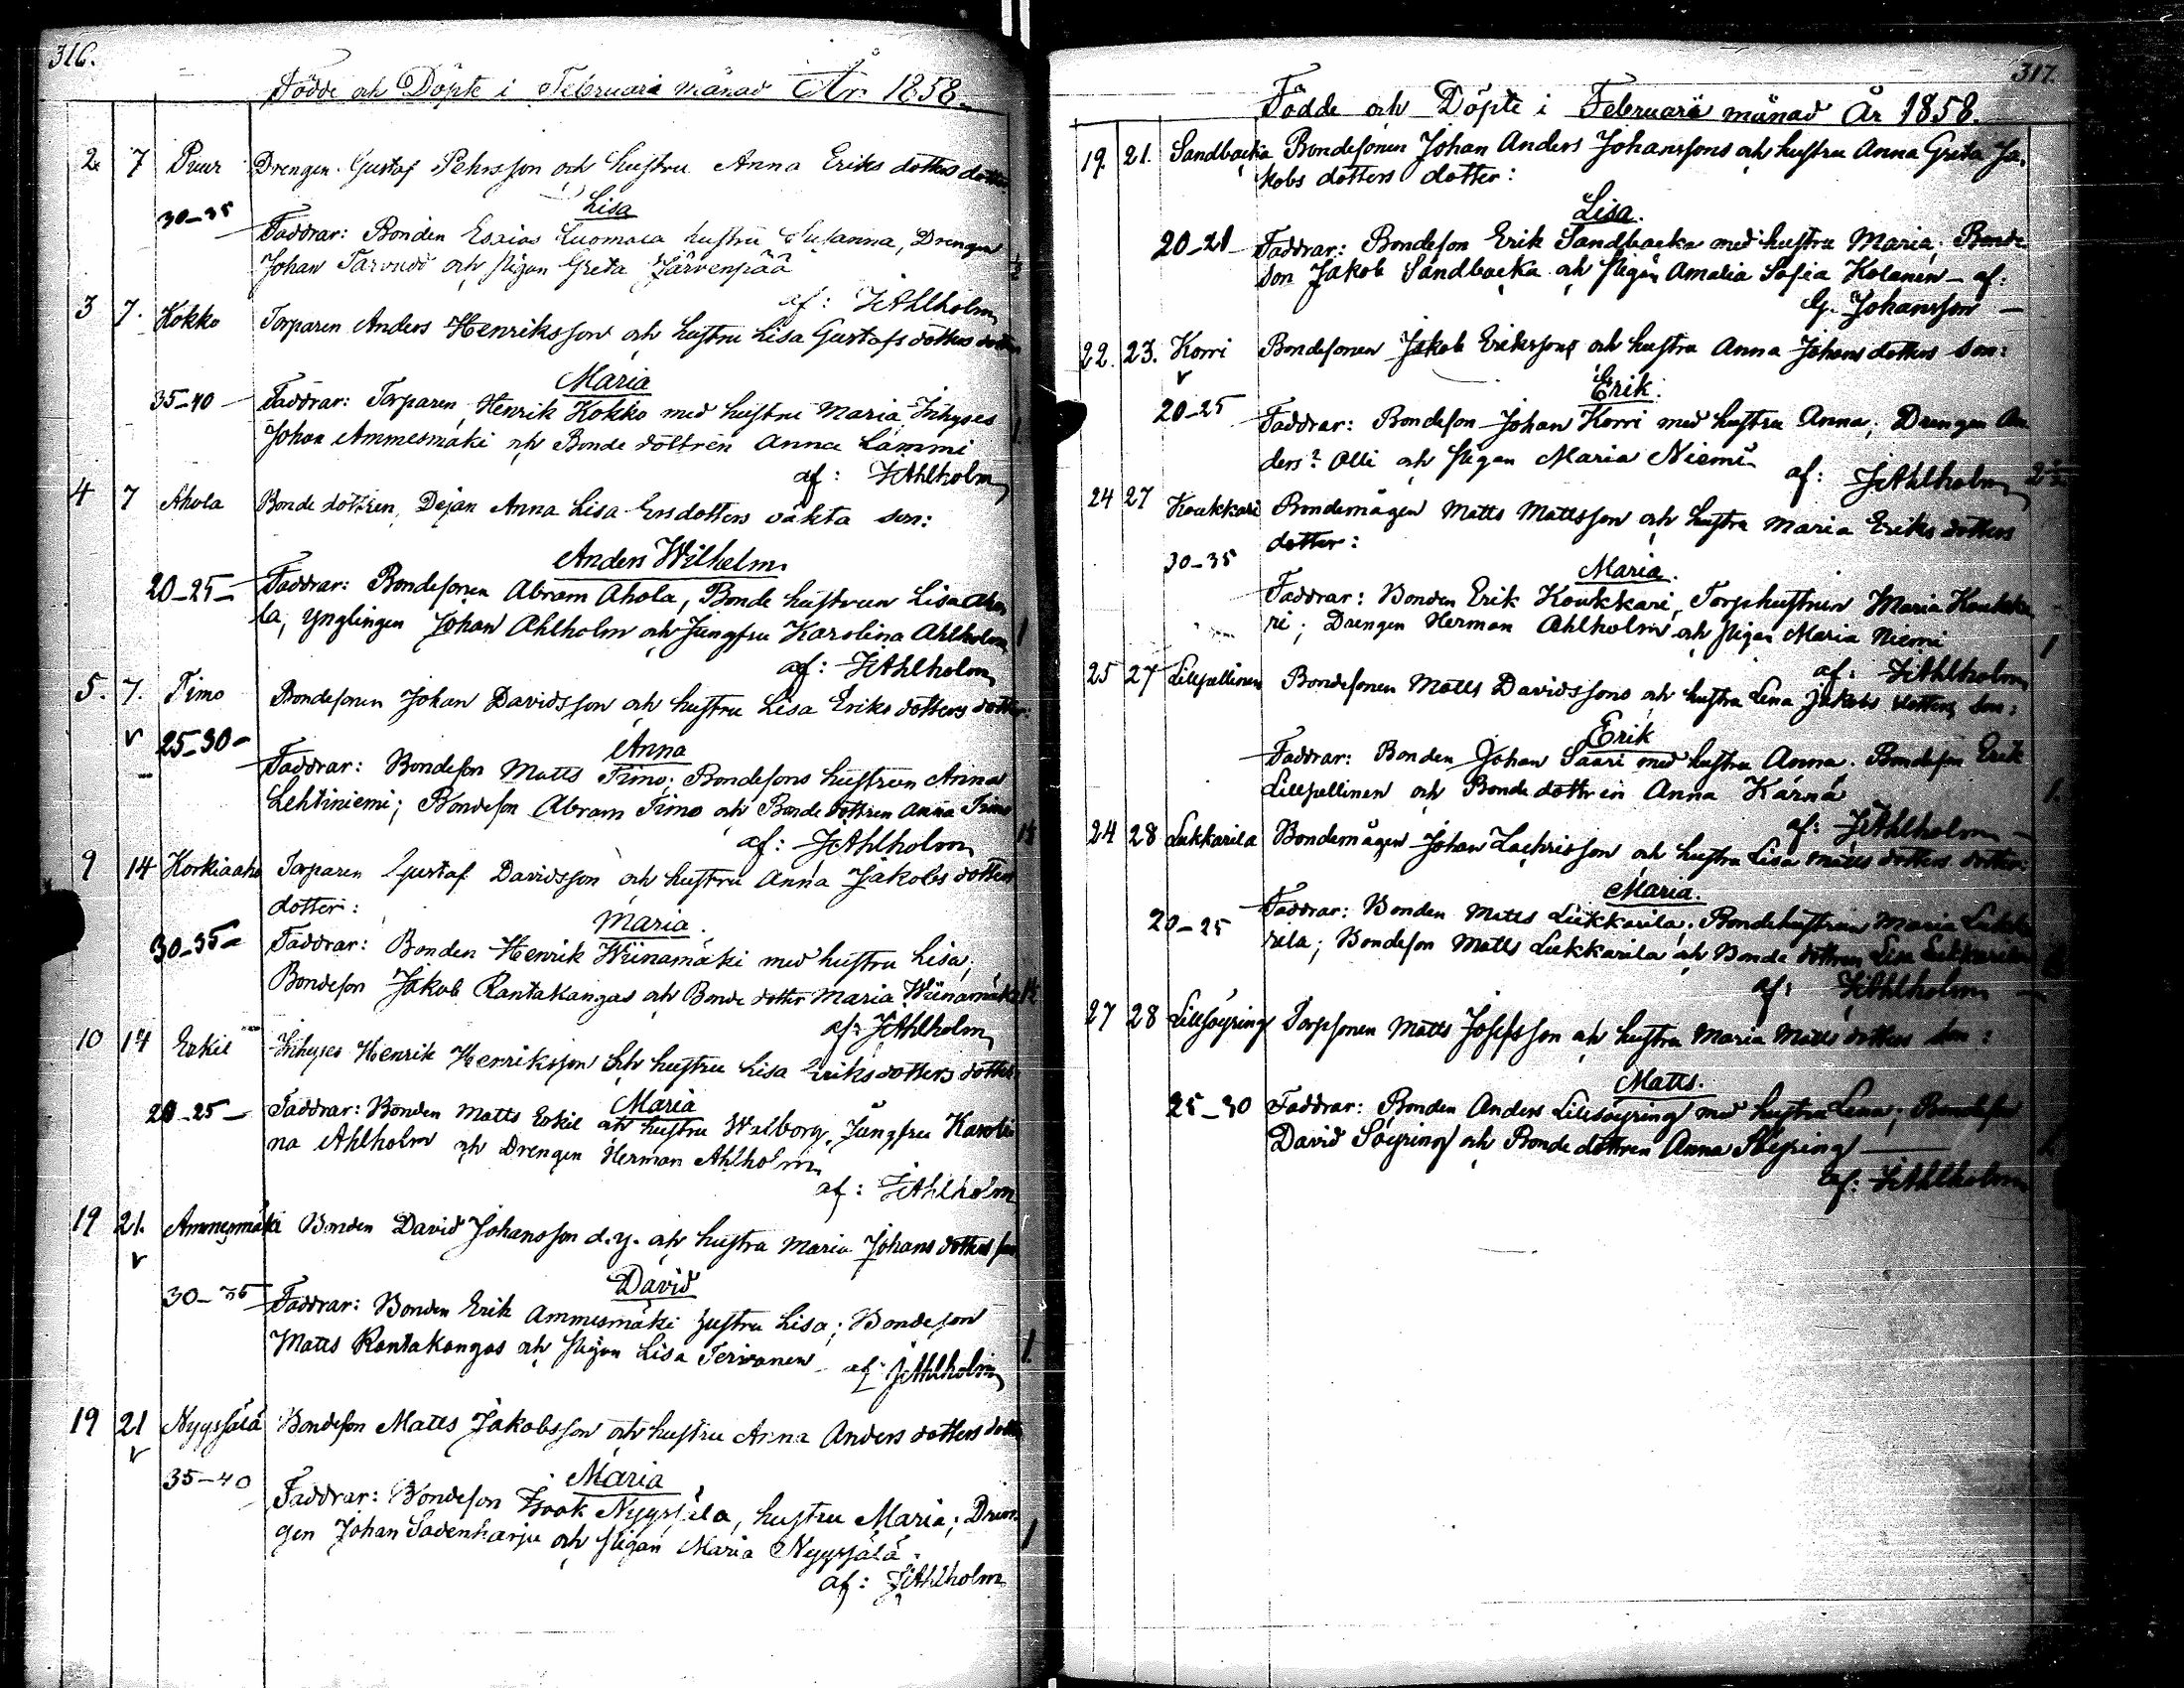 316.
Födde och Döpte i Februari månad År 1858.
2. 7 Puur Drengen Gustaf Pehrsson och hustru Anna Eriks dotters dotter
Lisa
30-35 Faddrar: Bonden Esaias Luomala hustru Susanna, Drengen
Johan och pigan Greta Järvenpää
af: JAhlholm
3 7. Kokko Torparen Anders Henriksson och hustru Lisa Gustafs dotters dotter
Maria
35-40 Faddrar: Torparen Henrik Kokko med hustru Maria, Inhyses
Johan Ammesmäki och Bonde dottren Anna Lammi
af: JAhlholm
4 7 Ahola Bonde dottren, Dejan Anna Lisa Ersdotters oäkta son:
Anders Wilhelm
20-25 Faddrar: Bondesonen Abram Ahola, Bonde hustrun Lisa Aho
la, ynglingen Johan Ahlholm och Jungfru Karolina Ahlholm 1
af: JAhlholm
5. 7. Timo Bondesonen Johan Davidsson och hustru Lisa Eriks dotters dotter:
Anna
v 25-30 Faddrar: Bondeson Matts Timo; Bondesons hustrun Anna
Lehtiniemi; Bondeson Abram Timo och Bonde dottren Anna Timo
af: JAhlholm
9 14 Korkiaaho Torparen Gustaf Davidsson och hustru Anna Jakobs dotters
dotter: Maria.
30-35 Faddrar: Bonden Henrik Wiinamäki med hustru Lisa,
Bondeson Jakob Rantakangas och Bonde dotter Maria Wiinamäki
af: JAhlholm
10 14 Eskil Inhyses Henrik Henriksson och hustru Lisa Eriksdotters dotter
Maria
20-25 Faddrar: Bonden Matts Eskil och hustru Walborg, Jungfru Karoli
na Ahlholm och Drengen Herman Ahlholm
af: JAhlholm
19 21. Ammesmäki Bonden David Johansson d.y. och hustru Maria Johans dotters son
v
David
30-35 Faddrar: Bonden Erik Ammesmäki hustru Lisa; Bondeson
Matts Rantakangas och pigan Lisa Tervonen 1.
af: JAhlholm
19 21 Nygsjälä Bondeson Matts Jakobsson och hustru Anna Anders dotters dotter
v
Maria
35-40 Faddrar: Bondeson Isaak Nygsjälä, hustru Maria; Dren
gen Johan Sadenharju och pigan Maria Nygsjälä 1
af: JAhlholm
317.
Födde och Döpte i Februari månad År 1858.
19. 21. Sandbacka Bondesonen Johan Anders Johanssons och hustru Anna Greta Ja
kobs dotters dotter:
Lisa.
20-21 Faddrar: Bondeson Erik Sandbacka med hustru Maria; Bonde
son Jakob Sandbacka och pigan Amalia Sofia Kolanen - af:
G. Johansson
22. 23. Korri Bondesonen Jakob Erikssons och hustru Anna Johans dotters son:
v
Erik.
20-25 Faddrar: Bondeson Johan Korri med hustru Anna; Drengen An
ders? Olli och pigan Maria Niemi
af: JAhlholm
24 27 Koukkari Bondemågen Matts Mattsson och hustru Maria Eriks dotters
dotter:
30-35
Maria.
Faddrar: Bonden Erik Koukkari, Torphustrun Maria Koukka
ri; Drengen Herman Ahlholm och pigan Maria Niemi 1
af: JAhlholm
25 27 Lillpellinen Bondesonen Matts Davidssons och hustru Lena Jakobs dotters son:
Erik
Faddrar: Bonden Johan Saari med hustru Anna. Bondeson Erik
Lillpellinen och Bonde dottren Anna Kärnä 1.
af: JAhlholm
24 28 Lukkarila Bondemågen Johan Zachrisson och hustru Lisa Matts dotters dotter:
Maria.
20-25 Faddrar: Bonden Matts Lukkarila; Bondehustrun Maria Lukka
rila; Bondeson Matts Lukkarila och Bonde dottren Lisa Lukkarila
af: JAhlholm
27 28 Lillsöyring Torpsonen Matts Josefsson och hustru Maria Matts dotters son:
Matts.
25-30 Faddrar: Bonden Anders Lillsöyring med hustru Lena; Bondeson
David Söyring och Bonde dottren Anna Söyring
af: JAhlholm